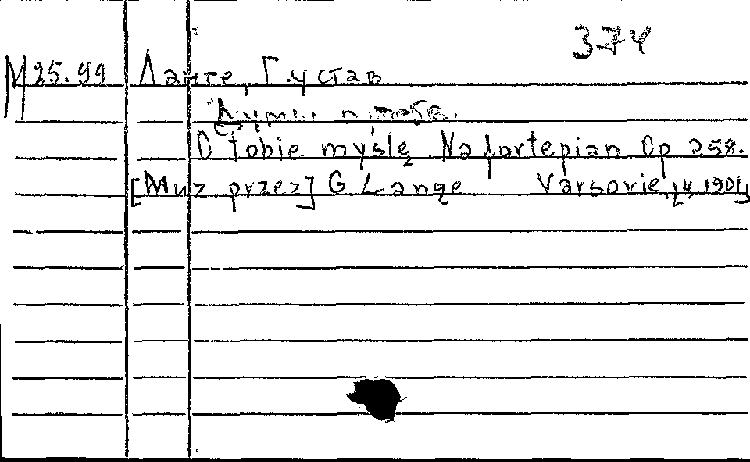 374
M 25.99 Ланге, Густав
O tobie myślę Na fortepian Op 258.
[Muz przez] G Lange Varsovie,